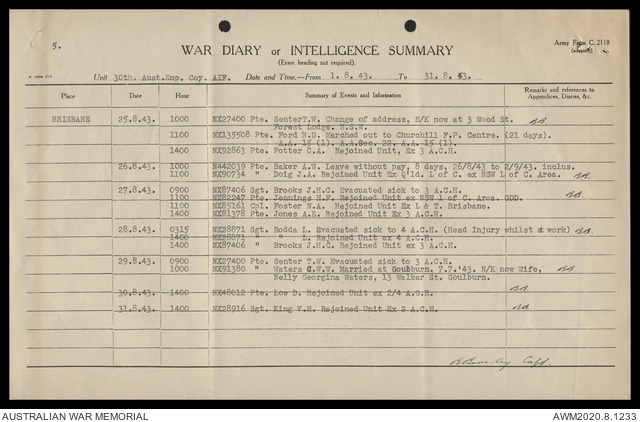 5.
WAR DIARY or INTELLIGENCE SUMMARY
Army Form C. 2118
(Erase heading not required).
Unit 30th. Aust.Emp. Coy. AIF. Date and Time.—From 1. 8. 43. To 31. 8. 43.
Place Date Hour Summary of Events and Information Remarks and references to Appendices, Diaries, &c.
BRISBANE 25.8.43. 1000 NX27400 Pte. SenterT.W. Change of address, N/K now at 3 Wood St.
Forest Lodge. N.S.W.
1100 NX135508 Pte. Ford R.D. Marched out to Churchill F.P. Centre. (21 days).
A.A. 15 (1). A.A.Sec. 22. A.A. 15 (1).
1400 NX92863 Pte. Potter C.A. Rejoined Unit, Ex 3 A.C.H.
26.8.43. 1000 N442039 Pte. Baker A.W. Leave without pay. 8 days. 26/8/43 to 2/9/43. inclus.
1100 NX90734 " Doig J.A. Rejoined Unit Ex Q'ld. L of C. ex NSW L of C. Area.
27.8.43. 0900 NX87406 Sgt. Brooks J.H.C. Evacuated sick to 3 A.C.H.
1100 NX82247 Pte. Jennings H.F. Rejoined Unit ex NSW l of C. Area. GDD.
1100 NX85161 Cpl. Foster W.A. Rejoined Unit Ex L & T. Brisbane.
1400 NX81378 Pte. Jones A.E. Rejoined Unit Ex 3 A.C.H.
28.8.43. 0315 NX28871 Sgt. Rodda L. Evacuated sick to 4 A.C.H. (Head Injury whilst at work)
1400 NX28871 " " L. Rejoined Unit ex 4 A.C.H.
1400 NX87406 " Brooks J.H.C. Rejoined Unit ex 3 A.C.H.
29.8.43. 0900 NX27400 Pte. Senter T.W. Evacuated sick to 3 A.C.H.
1000 NX91380 " Waters G.W.W. Married at Goulburn. 7.7.'43. N/K now Wife,
Nelly Georgina Waters, 13 Walker St. Goulburn.
30.8.43. 1400 NX48012 Pte. Low D. Rejoined Unit ex 2/4 A.G.H.
31.8.43. 1400 NX28916 Sgt. King V.H. Rejoined Unit Ex 2 A.C.H.
Capt.
AUSTRALIAN WAR MEMORIAL AWM2020.8.1233